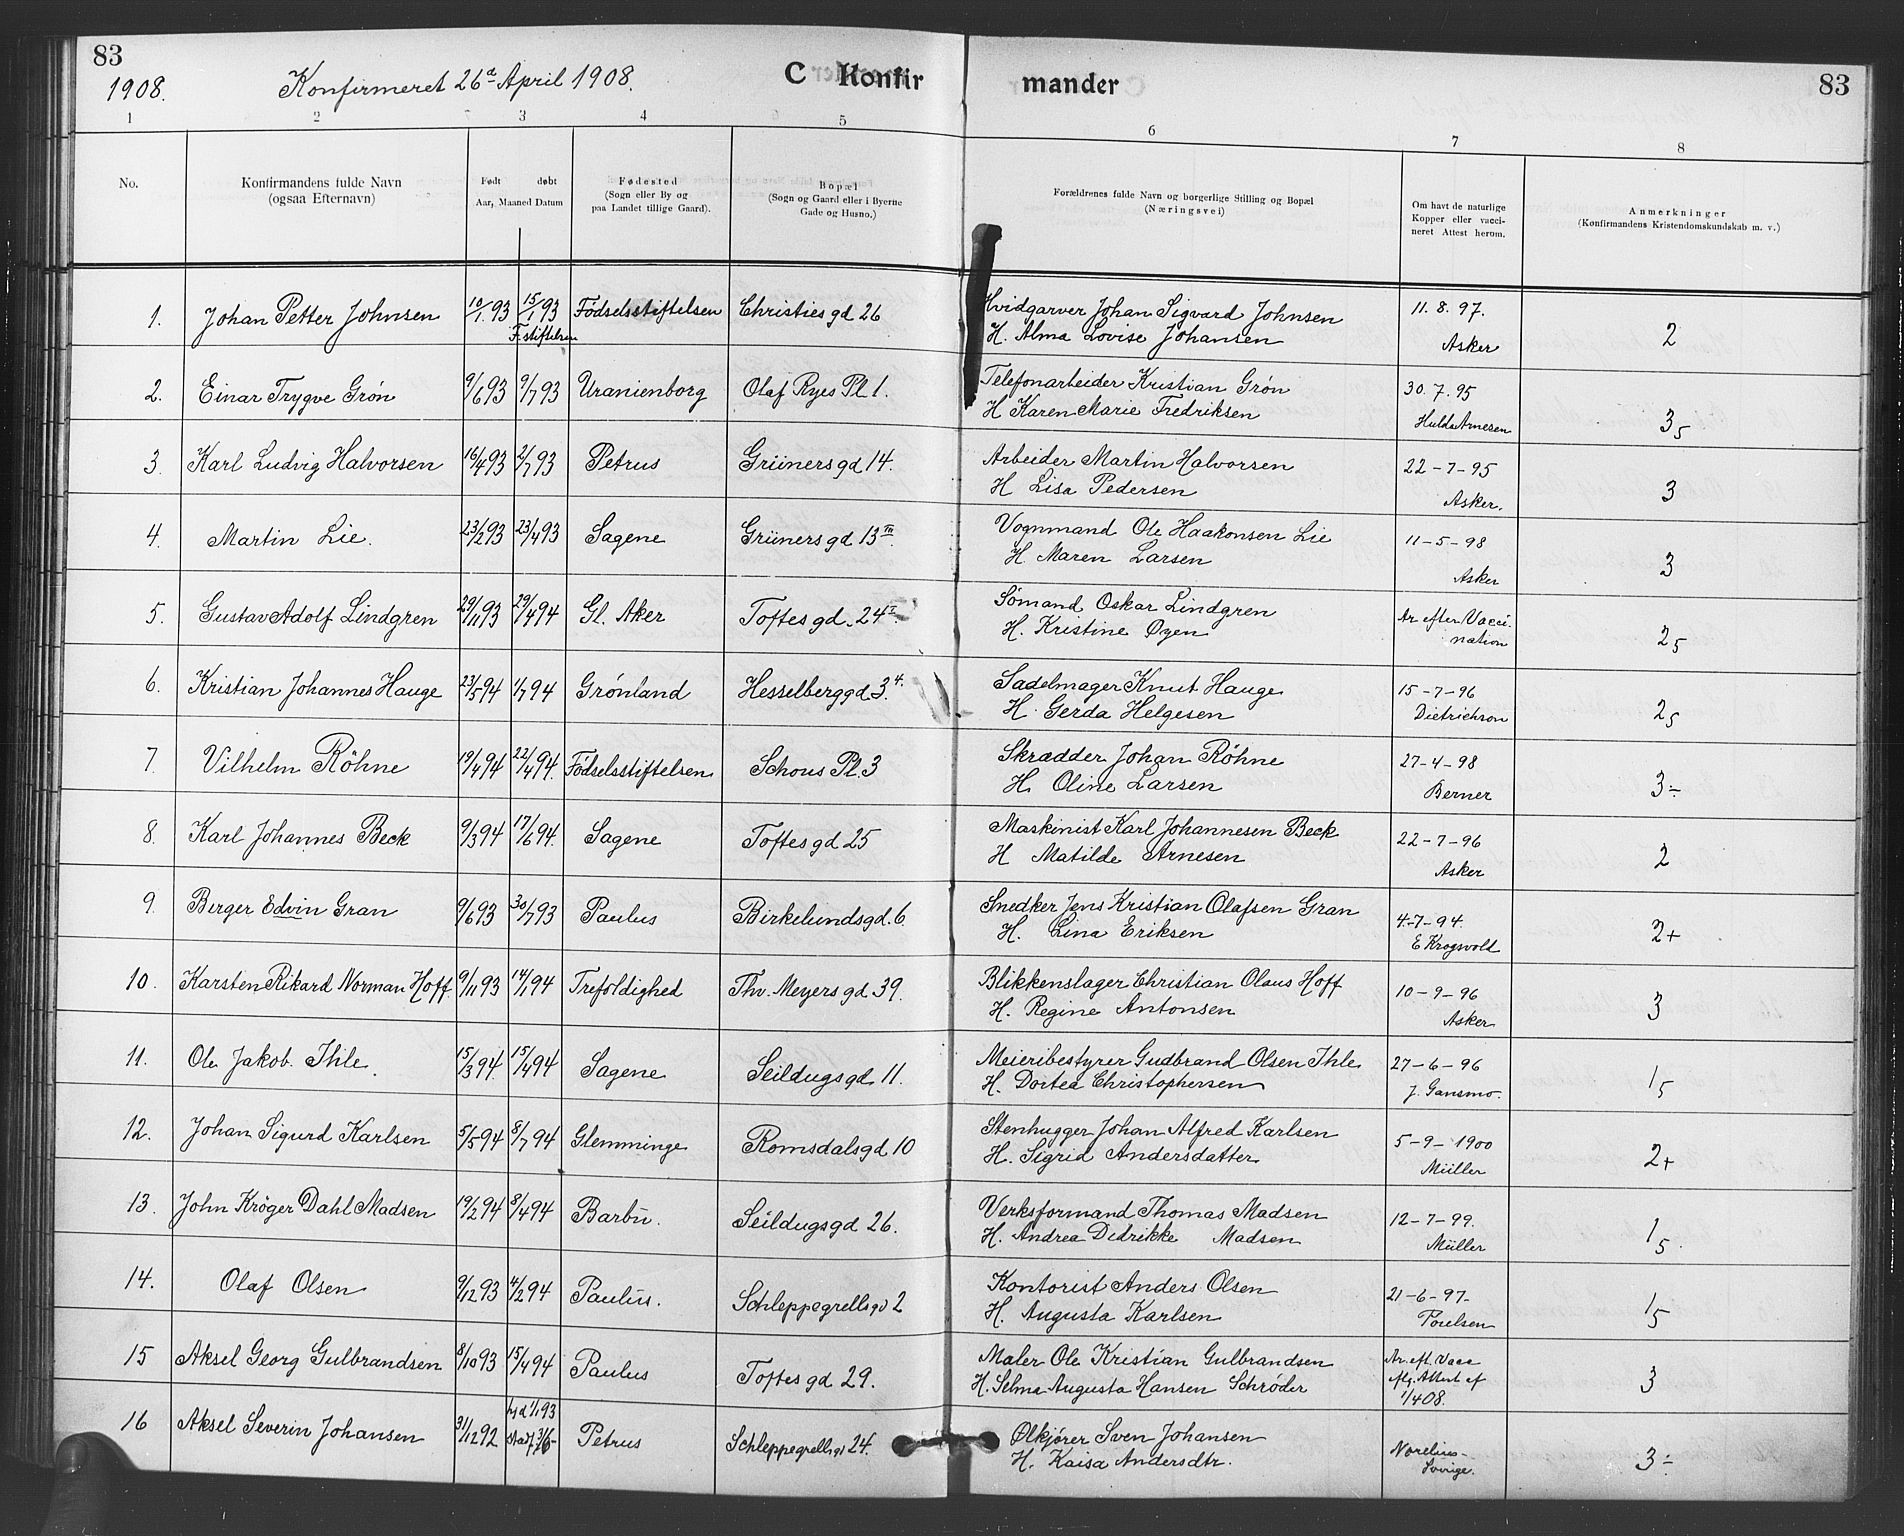 83
1908.
Konfirmeret 26d April 1908.
C Konfir
mander
83
1
2
3
4
5
6
7
8
No.
Konfirmandens fulde Navn
(ogsaa Efternavn)
Født døbt
Aar, Maaned Datum
Fødested
(Sogn eller By og
paa Landet tillige Gaard).
Bopæl
(Sogn og Gaard eller i Byerne
Gade og Husno.)
Forældrenes fulde Navn og borgerlige Stilling og Bopæl
(Næringsvei)
Om havt de naturlige
Kopper eller vacci-
neret Attest herom.
Anmerkninger
(Konfirmandens Kristendomskundskab m. v.)
1. Johan Petter Johnsen 10/1.93 15/1 93 Fødselsstiftelsen Christies gd 26 Hvidgarver Johan Sigvard Johnsen 11. 8. 97.
F. stiftelsen H. Alma Lovise Johansen Asker 2
2. Einar Trygve Grøn 9/6 93 9/7 93 Uranienborg Olaf Ryes Pl. 1. Telefonarbeider Kristian Grøn 30. 7. 95
H Karen Marie Fredriksen Hulda Arnesen 35
3. Karl Ludvig Halvorsen 16/4 93 2/7 93 Petrus Grüners gd 14. Arbeider Martin Halvorsen 22-7-95
H Lisa Pedersen Asker. 3
4. Martin Lie. 23/2 93 23/4 93 Sagene Grüners gd 13 III. Vognmand Ole Haakonsen Lie 11-5-98
H. Maren Larsen Asker 3
5. Gustav Adolf Lindgren 29/11 93 29/4 94 Gl. Aker Toftes gd. 24 I Sømand Oskar Lindgren Ar efter Vacci-
H. Kristine Øyen nation 25
6. Kristian Johannes Hauge 23/5 94 1/7 94 Grønland Hesselberggd 3.4. Sadelmager Knut Hauge 15-7-96
H. Gerda Helgesen Dietrichson 25
7. Vilhelm Röhne 19/4 94 22/4 94. Fødselsstiftelsen Schous Pl. 3 Skrædder Johan Røhne 27-4-98
H. Oline Larsen Berner 3÷
8. Karl Johannes Beck 9/3 94 17/6 94. Sagene Toftes gd 25 Maskinist Karl Johannesen Beck 22-7-96
H Matilde Arnesen Asker 2
9. Berger Edvin Gran 9/6 93 30/7 93 Paulus Birkelundsgd. 6 Snedker Jens Kristian Olafsen Gran 4-7-94.
H. Lina Eriksen E Krogsvold 2+
10. Karsten Rikard Norman Hoff 9/11 93 14/1 94 Trefoldighed Thv. Meyers gd 39. Blikkenslager Christian Olaus Hoff 10-9-96
H. Regine Antonsen Asker 3
11. Ole Jakob Ihle. 15/3 94. 15/4 94 Sagene Seildugsgd 11. Meieribestyrer Gudbrand Olsen Ihle 27-6-96
H. Dortea Christophersen J. Gansmo. 15
12. Johan Sigurd Karlsen 5/5 94 8/7 94 Glemminge Romsdalsgd 10 Stenhugger Johan Alfred Karlsen 5-9-1900
H. Sigrid Andersdatter Müller 2+
13. John Kröger Dahl Madsen 19/2 94 8/4 94 Barbu. Seildugsgd 26. Verksformand Thomas Madsen 12-7-99.
H. Andrea Didrikke Madsen Müller 15.
14. Olaf Olsen 9/12 93 4/2 94 Paulus. Schleppegrellsgd 2 Kontorist Anders Olsen 21-6-97.
H. Augusta Karlsen Poulsen 15
15 Aksel Georg Gulbrandsen 8/10 93 15/4 94 Paulus Toftes gd 29. Maler Ole Kristian Gulbrandsen Ar. eft. Vacc
H. Selma Augusta Hansen Schrøder eflg. Attest af
1/4 08. 3
16 Aksel Severin Johansen 31/12 92 hjd 1/1 93 Petrus Schleppegrellsgd 24. Ølkjører Sven Johansen
H. Kaisa Andersdtr. Norelius-
Sverige. 3÷